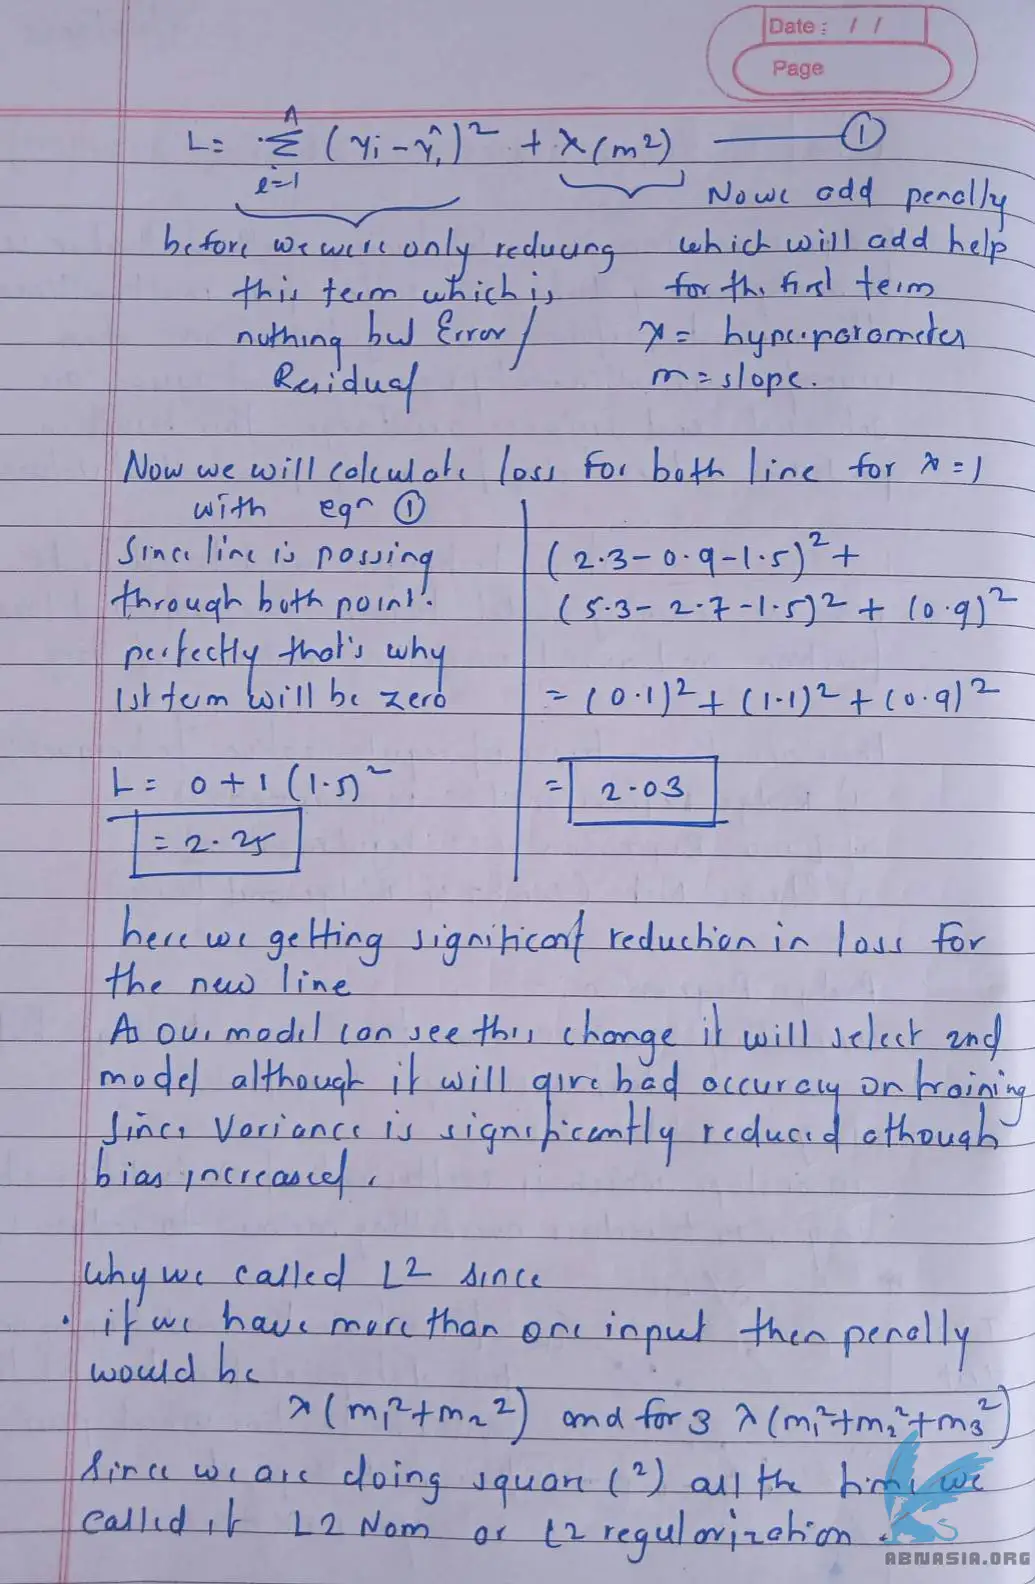 Date : / /
Page
L = n Σ i=1 (yi - ŷi)² + λ(m²) ——— ①
Now we add penally
before we were only reducing which will add help
this term which is for the first term
nothing but Error/ λ = hyperparameter
Residual m = slope.
Now we will calculate loss for both line for λ = 1
with eqn ①
Since line is passing
through both point.
perfectly that's why
1st term will be zero
L = 0 + 1 (1.5)²
= 2.25
(2.3 - 0.9 - 1.5)² +
(5.3 - 2.7 - 1.5)² + (0.9)²
= (0.1)² + (1.1)² + (0.9)²
= 2.03
here we getting significant reduction in loss for
the new line
As our model can see this change it will select 2nd
model although it will give bad accuracy on training
Since Variance is significantly reduced although
bias increased.
Why we called L2 since
• if we have more than one input then penally
would be
λ(m₁² + m₂²) and for 3 λ(m₁² + m₂² + m₃²)
Since we are doing square (²) all the time we
called it L2 Nom or L2 regularization.
ABNASIA.ORG